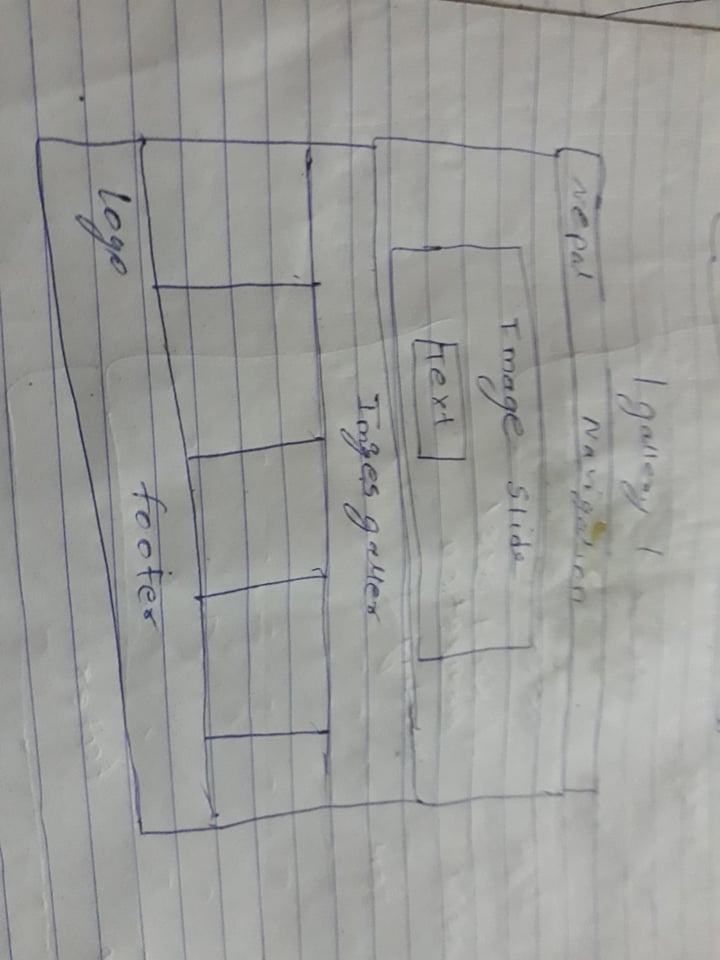 | gallery |
Nepal Navigation
Image Slide
Text
Imges galler
footer
Logo